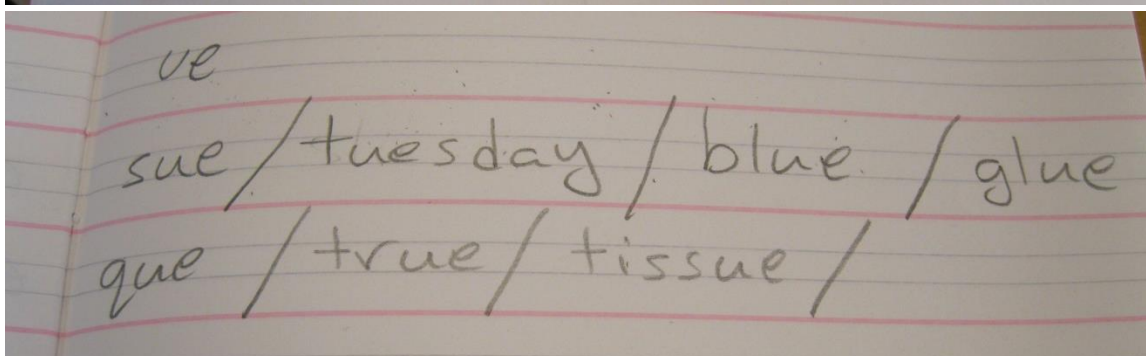 ue
sue / tuesday / blue / glue
que / true / tissue /